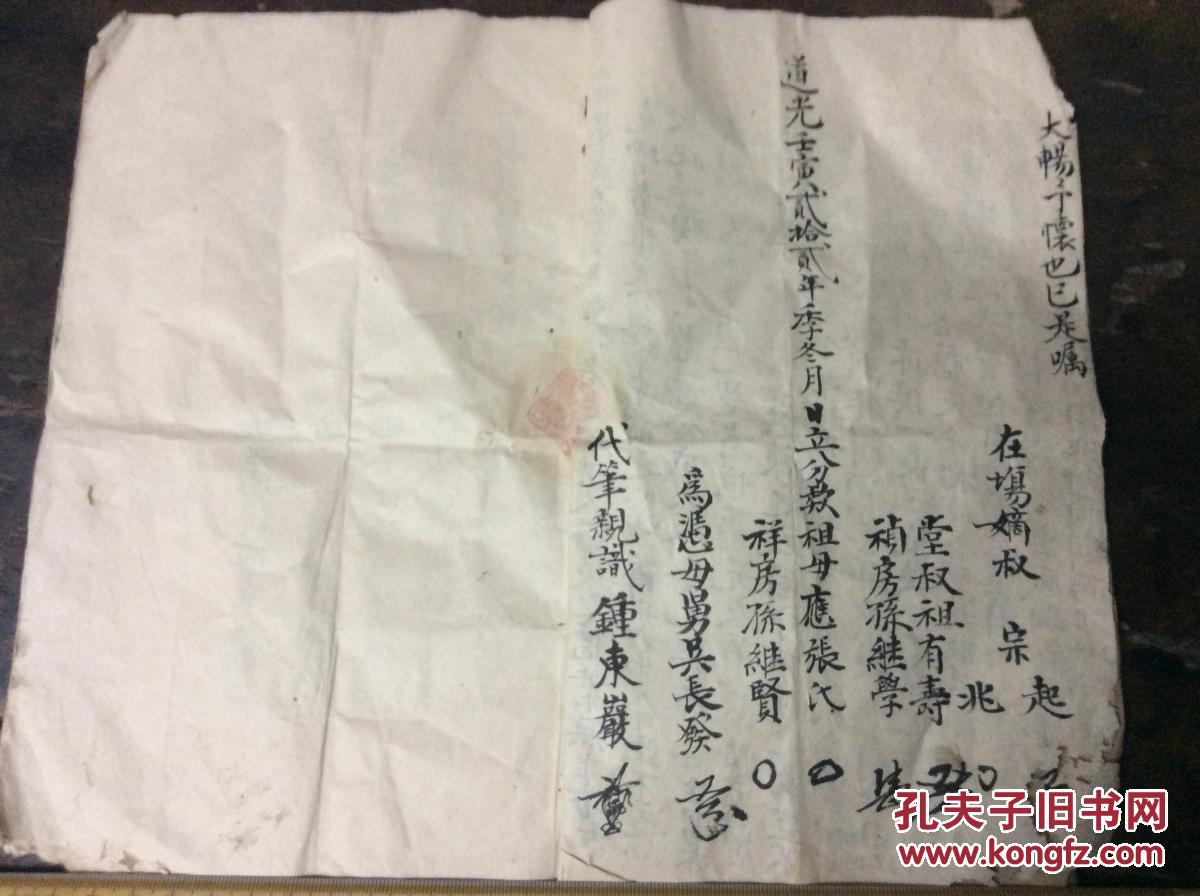 大暢予懷也已是嘱
在塲嫡叔宗
起
兆
堂叔祖有壽
禎房孫継學
道光壬寅貳拾貳年季冬月日立分款祖母應張氏
祥房孫継賢
為憑母舅吳長發
代筆親識鍾東巖
孔夫子旧书网
www.kongfz.com